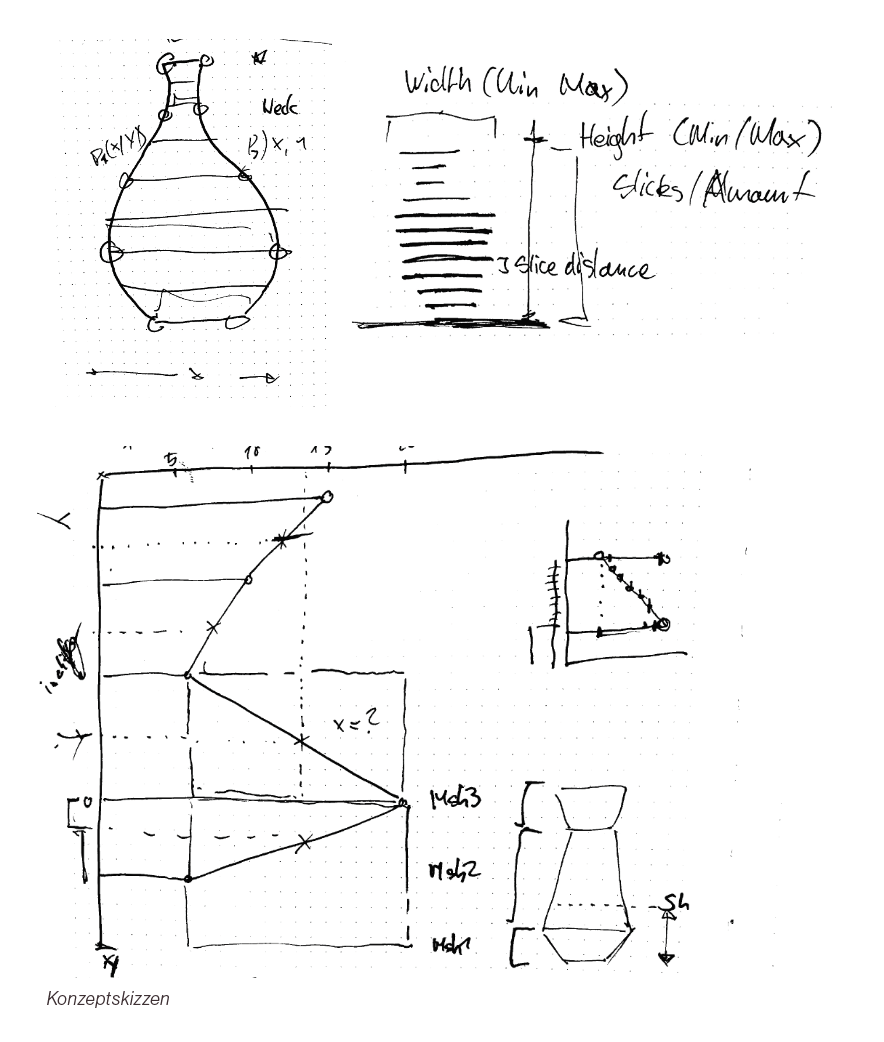 Neck
P1(x/y)
P) x, y
x
Width (Min Max)
Height (Min/Max)
Slices/Amount
Slice distance
5 10 15
Y
x = ?
Msh3
Msh2
Msh1
xy
Sh
Konzeptskizzen